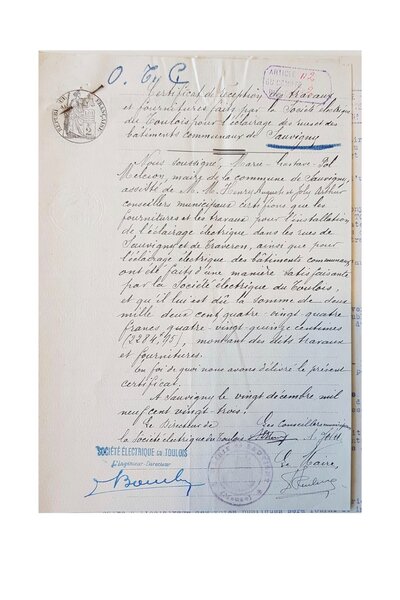 O. Ty C
ARTICLE 2
Certificat de réception des travaux
et fournitures faits par la Société électrique
du Toulois pour l'éclairage des rues et des
bâtiments communaux de Sauvigny
Nous soussigné, Marie-Gustave-Pol
maire de la commune de Sauvigny,
assisté de M. M. Henry Auguste et Joly Arthur
conseillers municipaux certifions que les
fournitures et les travaux pour l'installation
de l'éclairage électrique dans les rues de
Sauvigny et de Traveron, ainsi que pour
l'éclairage électrique des bâtiments communaux
ont été faits d'une manière satisfaisante
par la Société électrique du Toulois,
et qu'il lui est dû la somme de deux
mille deux cent quatre vingt quatre
francs quatre-vingt quinze centimes
(2284f,95), montant des dets travaux
et fournitures.
En foi de quoi nous avons délivré le présent
certificat.
A Sauvigny le vingt décembre mil
neuf cent vingt trois.
Le Directeur de
la Société électrique du Toulois
Les Conseillers municipaux
SOCIÉTÉ ÉLECTRIQUE DU TOULOIS
L'Ingénieur-Directeur
Le Maire,